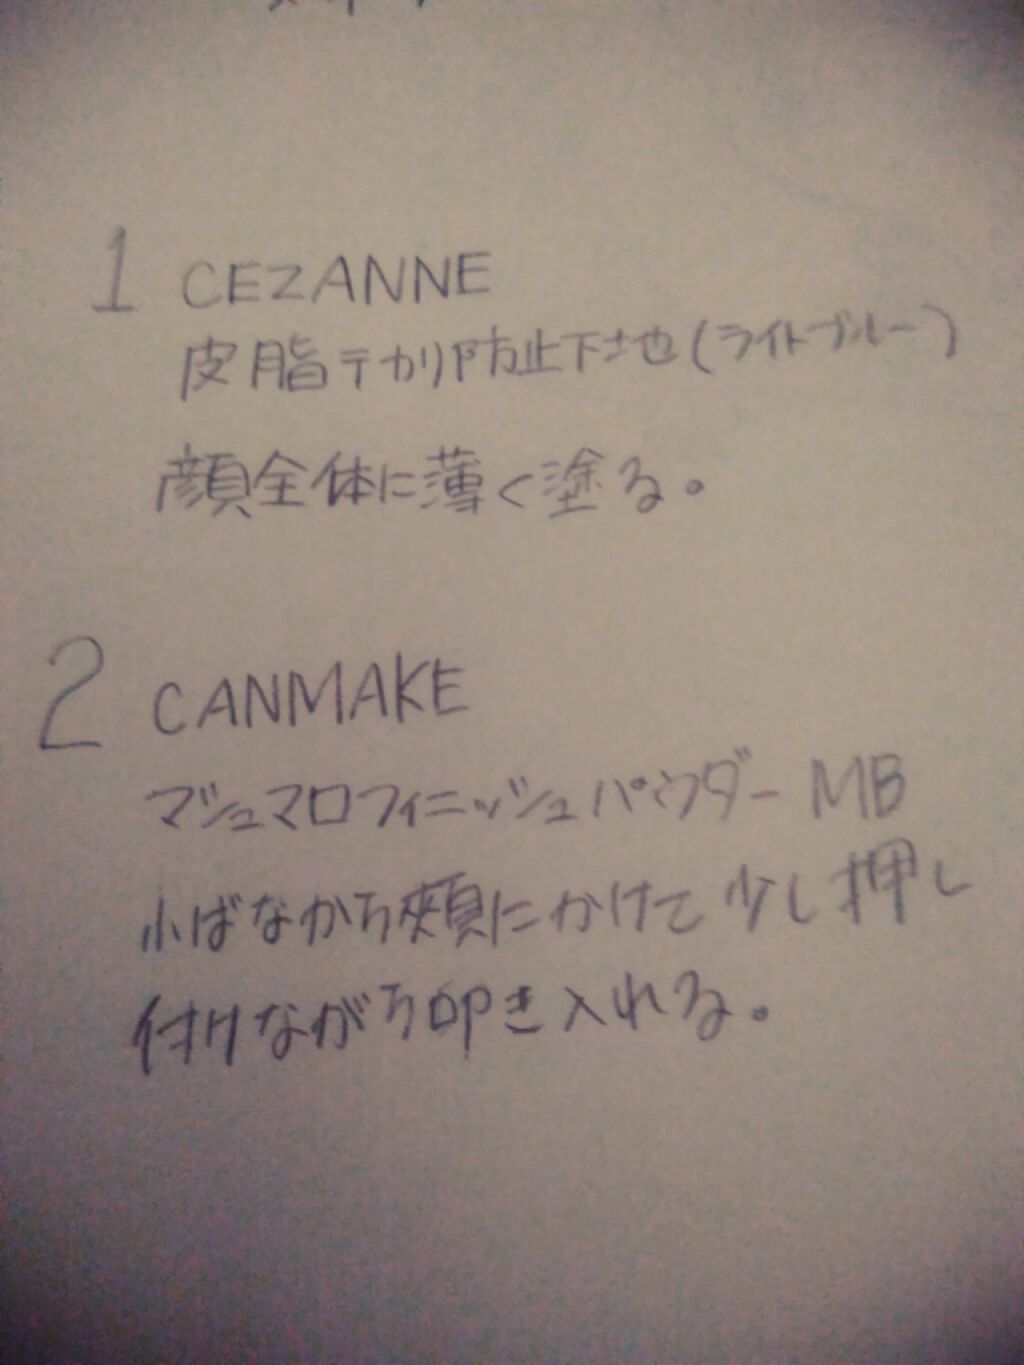 1 CEZANNE
皮脂テカリ防止下地(ライトブルー)
顔全体に薄く塗る。
2 CANMAKE
マシュマロフィニッシュパウダー MB
小ばなから頬にかけて少し押し
付けながら叩き入れる。